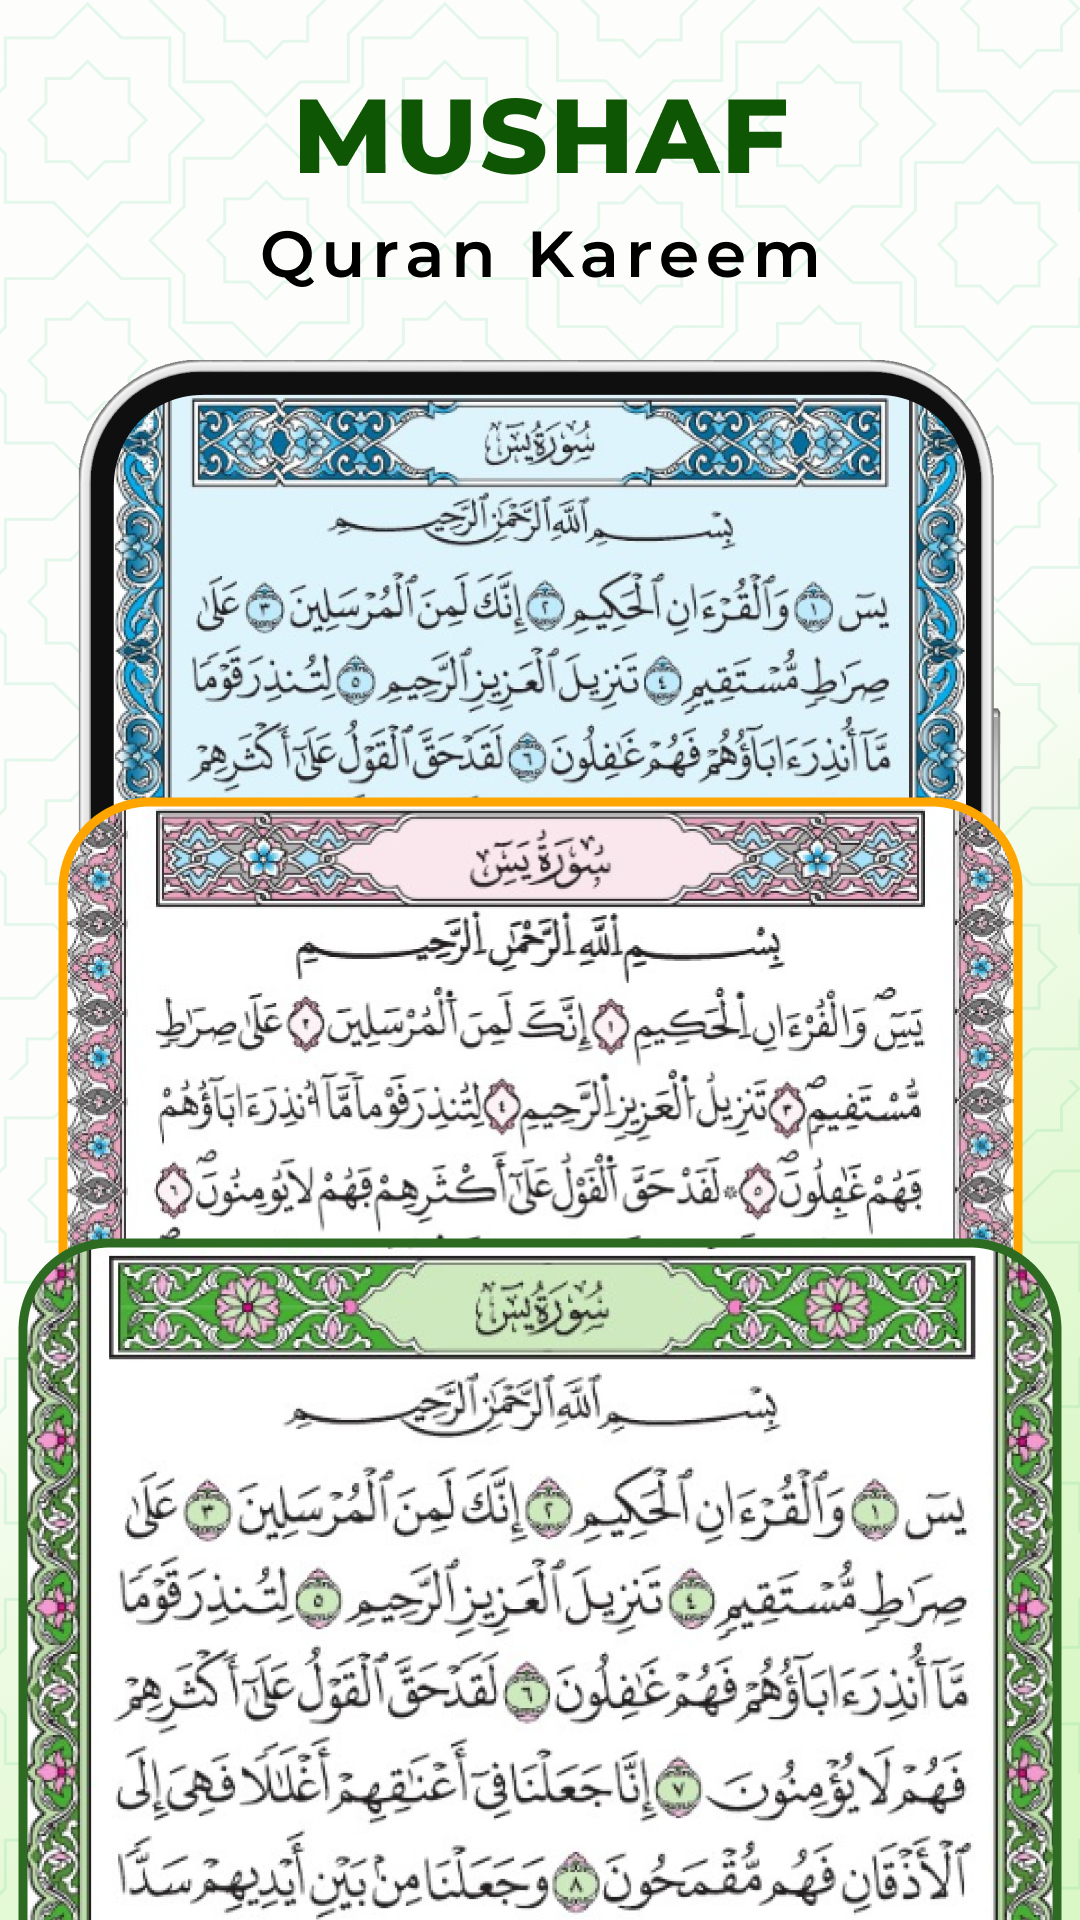 MUSHAF
Quran Kareem
سُورَةُ يسٓ
بِسْمِ ٱللَّهِ ٱلرَّحْمَٰنِ ٱلرَّحِيمِ
يسٓ ١ وَٱلْقُرْءَانِ ٱلْحَكِيمِ ٢ إِنَّكَ لَمِنَ ٱلْمُرْسَلِينَ ٣ عَلَىٰ
صِرَٰطٍ مُّسْتَقِيمٍ ٤ تَنزِيلَ ٱلْعَزِيزِ ٱلرَّحِيمِ ٥ لِتُنذِرَ قَوْمًا
مَّآ أُنذِرَ ءَابَآؤُهُمْ فَهُمْ غَٰفِلُونَ ٦ لَقَدْ حَقَّ ٱلْقَوْلُ عَلَىٰٓ أَكْثَرِهِمْ
سُورَةُ يَسِٓ
بِسْمِ اِ۬للَّهِ اِ۬لرَّحْمَٰنِ اِ۬لرَّحِيمِ
يَسِٓۖ وَالْقُرْءَانِ اِ۬لْحَكِيمِ ١ إِنَّكَ لَمِنَ اَ۬لْمُرْسَلِينَ ٢ عَلَىٰ صِرَٰطٖ
مُّسْتَقِيمٖۖ ٣ تَنزِيلُ اُ۬لْعَزِيزِ اِ۬لرَّحِيمِ ٤ لِتُنذِرَ قَوْماٗ مَّآ أُنذِرَ ءَابَآؤُهُمْ
فَهُمْ غَٰفِلُونَۖ ٥ ۞ لَقَدْ حَقَّ اَ۬لْقَوْلُ عَلَىٰٓ أَكْثَرِهِمْ فَهُمْ لَا يُومِنُونَۖ ٦
سُورَةُ يسٓ
بِسْمِ ٱللَّهِ ٱلرَّحْمَٰنِ ٱلرَّحِيمِ
يسٓ ١ وَٱلْقُرْءَانِ ٱلْحَكِيمِ ٢ إِنَّكَ لَمِنَ ٱلْمُرْسَلِينَ ٣ عَلَىٰ
صِرَٰطٍ مُّسْتَقِيمٍ ٤ تَنزِيلَ ٱلْعَزِيزِ ٱلرَّحِيمِ ٥ لِتُنذِرَ قَوْمًا
مَّآ أُنذِرَ ءَابَآؤُهُمْ فَهُمْ غَٰفِلُونَ ٦ لَقَدْ حَقَّ ٱلْقَوْلُ عَلَىٰٓ أَكْثَرِهِمْ
فَهُمْ لَا يُؤْمِنُونَ ٧ إِنَّا جَعَلْنَا فِىٓ أَعْنَٰقِهِمْ أَغْلَٰلًا فَهِىَ إِلَى
ٱلْأَذْقَانِ فَهُم مُّقْمَحُونَ ٨ وَجَعَلْنَا مِنۢ بَيْنِ أَيْدِيهِمْ سَدًّا